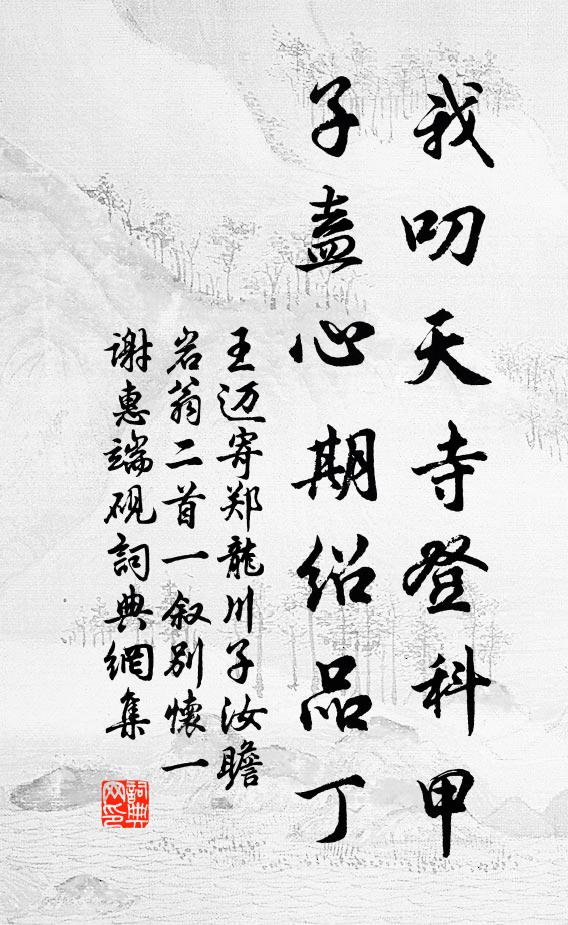 我叨天寺登科甲
子盍心期绍品丁
王迈寄郑龍川子汝瞻
岩翁二首一叙别懷一
谢惠端砚詞典網集
詞典
网印